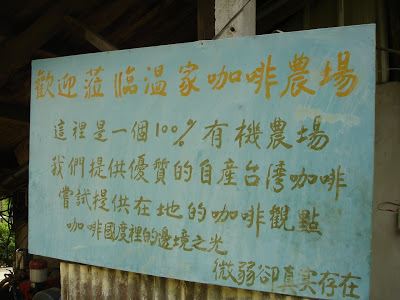 歡迎莅臨溫家咖啡農場
這裡是一個100%有機農場
我們提供優質的自產台灣咖啡
嘗試提供在地的咖啡觀點
咖啡國度裡的邊境之光
微弱卻真实存在